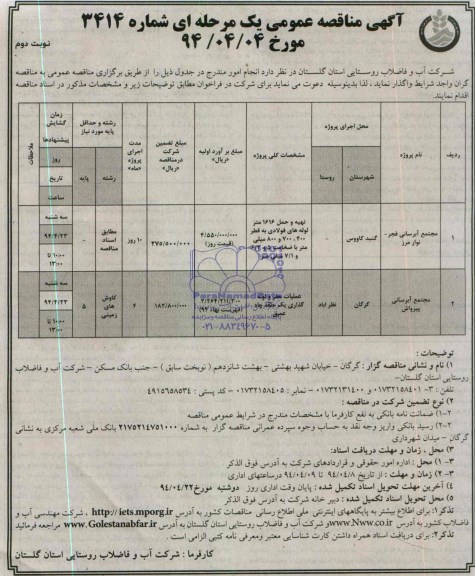 آگهی مناقصه عمومی یک مرحله ای شماره ۳۴۱۴
مورخ ۹۴/۰۴/۰۴
نوبت دوم
شرکت آب و فاضلاب روستایی استان گلستان در نظر دارد انجام امور مندرج در جدول ذیل را از طریق برگزاری مناقصه عمومی به مناقصه
گران واجد شرایط واگذار نماید ، لذا بدینوسیله دعوت می نماید برای شرکت در فراخوان مطابق توضیحات زیر و مشخصات مذکور در اسناد مناقصه
اقدام نمایند.
ردیف
نام پروژه
محل اجرای پروژه
شهرستان
روستا
مشخصات کلی پروژه
مبلغ بر آورد اولیه «ریال»
مبلغ تضمین شرکت درمناقصه «ریال»
مدت اجرای پروژه «ماه»
رشته و حداقل پایه مورد نیاز
رشته
پایه
زمان گشایش پیشنهادها
روز
تاریخ
ساعت
ملاحظات
۱
مجتمع آبرسانی فجر- نوار مرز
گنبد کاووس
-
تهیه و حمل ۱۶۱۶ متر
لوله های فولادی به قطر
۴/۵۵۰/۰۰۰/۰۰۰ (قیمت روز)
۲۷۵/۵۰۰/۰۰۰
۱۰ روز
مطابق اسناد مناقصه
-
سه شنبه
۹۴/۴/۲۳
۱۰:۰۰ تا ۱۳:۰۰
۲
مجتمع آبرسانی پیرواش
گرگان
نظر آباد
عملیات حفر و لوله
گذاری یک حلقه چاه
عمیق
۳/۲۶۴/۲۱۱/۳۰۰
(فهرست بهاء ۹۳)
۱۸۲/۸۰۰/۰۰۰
۶
کاوش های زمینی
۵
سه شنبه
۹۴/۴/۲۳
۱۰:۰۰ تا ۱۳:۰۰
ParsNamadData
۰۲۱-۸۸۳۴۹۶۷۰-۵
توضیحات :
۱) نام و نشانی مناقصه گزار : گرگان – خیابان شهید بهشتی – بهشت شانزدهم ( نوبخت سابق ) – جنب بانک مسکن – شرکت آب و فاضلاب
روستایی استان گلستان–
تلفن : ۳-۰۱۷۳۲۱۵۸۴۰۱ و ۰۱۷۳۲۱۳۱۴۰۰ – نمابر : ۰۱۷۳۲۱۵۸۴۰۵ – کد پستی : ۴۹۱۵۶۵۸۵۳۴
۲) نوع تضمین شرکت در مناقصه :
۲-۱) ضمانت نامه بانکی به نفع کارفرما با مشخصات مندرج در شرایط عمومی مناقصه
۲-۲) رسید بانکی واریز وجه نقد به حساب وجوه سپرده عمرانی مناقصه گزار به شماره ۲۱۷۵۲۱۴۷۵۱۰۰۰ بانک ملی شعبه مرکزی به نشانی
گرگان – میدان شهرداری
۳) محل ، زمان و مهلت دریافت اسناد:
۳-۱) محل : اداره امور حقوقی و قراردادهای شرکت به آدرس فوق الذکر
۳-۲) زمان و مهلت : از تاریخ ۹۴/۰۴/۸ تا ۹۴/۰۴/۰۹ درساعتهای اداری
۴) آخرین مهلت تحویل اسناد تکمیل شده : پایان وقت اداری روز دوشنبه مورخ ۹۴/۰۴/۲۲
۵) محل تحویل اسناد تکمیل شده : دبیر خانه شرکت به آدرس فوق الذکر
تذکر۱: برای اطلاع بیشتر به پایگاههای اینترنتی ملی اطلاع رسانی مناقصات کشور به آدرس http://iets.mporg.ir ، شرکت مهندسی آب و
فاضلاب کشور به آدرس www.Nww.co.ir و شرکت آب و فاضلاب روستایی استان گلستان به آدرس www.Golestanabfar.ir مراجعه فرمائید
تذکر۲: برای دریافت اسناد همراه داشتن کارت شناسایی معتبر ومعرفی نامه کتبی الزامی است .
کارفرما : شرکت آب و فاضلاب روستایی استان گلستان